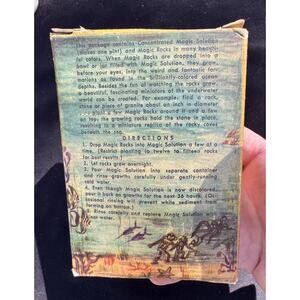 This package contains Concentrated Magic Solution
(makes one pint) and Magic Rocks in many beauti-
ful colors. When Magic Rocks are dropped into a
bowl or jar filled with Magic Solution, they grow,
before your eyes, into the weird and fantastic for-
mations as found in the brilliantly-colored ocean
depths. Besides the fun of watching the rocks grow,
a beautiful, fascinating miniature of the underwater
world can be created. For example: find a rock,
stone or piece of granite about an inch in diameter
Put a few Magic Rocks around it and a few
on top as the growing rocks hold the stone in place,
resulting in a miniature replica of the rocky caves
beneath the sea.
DIRECTIONS
1. Drop Magic Rocks into Magic Solution a few at a
time. (Restrict planting to twelve to fifteen rocks
for best results.)
2. Let rocks grow overnight.
3. Pour Magic Solution into separate container
and rinse growths carefully under gently-running
cold water.
4. Even though Magic Solution is now discolored,
pour it back on growths for the next 36 hours. (Oc-
casional rinsing will prevent white sediment from
forming on bottom.)
5. Rinse carefully and replace Magic Solution with
clear water.